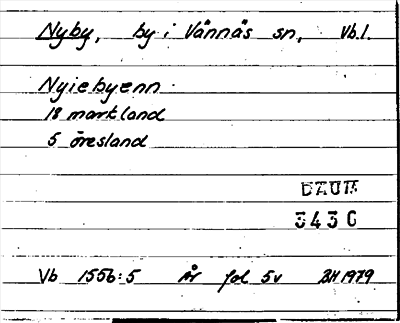 Nyby, by i Vännäs sn, Vb.l.
Nyiebyenn
18 markland
5 öresland
DAUM
3430
Vb 1556:5 År fol 5v BH 1979